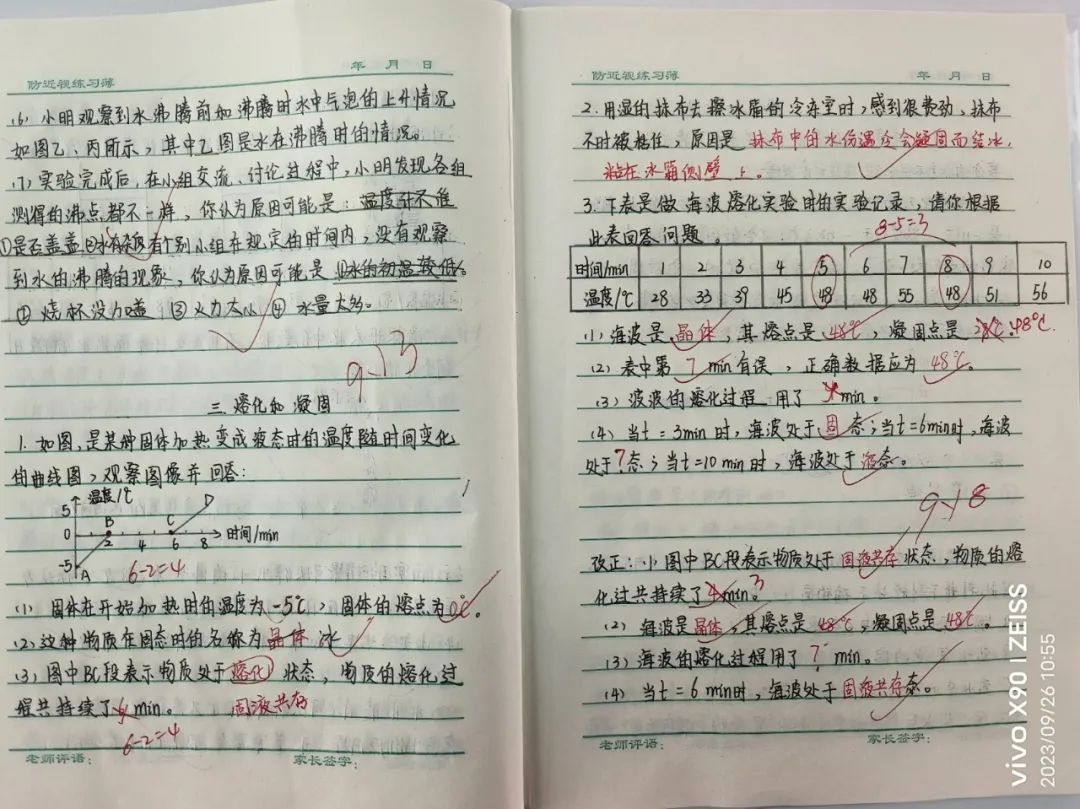 年 月 日
防近视练习薄
(6) 小明观察到水沸腾前和沸腾时水中气泡的上升情况
如图乙、丙所示,其中乙图是水在沸腾时的情况。
(7) 实验完成后,在小组交流、讨论过程中,小明发现各组
测得的沸点都不一样,你认为原因可能是:温度计不准
①是否盖盖 有个别小组在规定的时间内,没有观察
到水的沸腾的现象,你认为原因可能是 ①水的初温较低
② 烧杯没加盖 ③火力太小 ④ 水量太多。
9.13
三 熔化和凝固
1. 如图,是某种固体加热变成液态时的温度随时间变化
的曲线图,观察图像并回答:
温度/℃
5
0
-5
A
B
C
D
2 4 6 8
时间/min
6-2=4
(1) 固体在开始加热时的温度为-5℃,固体的熔点为0℃。
(2) 这种物质在固态时的名称为晶体 冰
(3) 图中BC段表示物质处于熔化 状态,物质的熔化过
程共持续了 min。 固液共存
6-2=4
老师评语: 家长签字:
年 月 日
防近视练习薄
2. 用湿的抹布去擦冰箱的冷冻室时,感到很费劲,抹布
不时被粘住,原因是 抹布中的水份遇冷会凝固而结冰,
粘在冰箱侧壁上。
3. 下表是做海波熔化实验时的实验记录,请你根据
此表回答问题。
8-5=3
时间/min 1 2 3 4 5 6 7 8 9 10
温度/℃ 28 33 39 45 48 48 55 48 51 56
(1) 海波是晶体,其熔点是48℃,凝固点是 48℃.
(2) 表中第 7 min有误,正确数据应为 48℃。
(3) 波波的熔化过程 用了 min。
(4) 当t=3min时,海波处于固态;当t=6min时,海波
处于?态;当t=10min时,海波处于液态。
9.18
改正:(1) 图中BC段表示物质处于固液共存状态,物质的熔
化过共持续了4min?
(2) 海波是晶体,其熔点是48℃,凝固点是48℃。
(3) 海波的熔化过程用了 ? min。
(4) 当t=6min时,海波处于固液共存态。
老师评语: 家长签字:
vivo X90 | ZEISS
2023/09/26 10:55